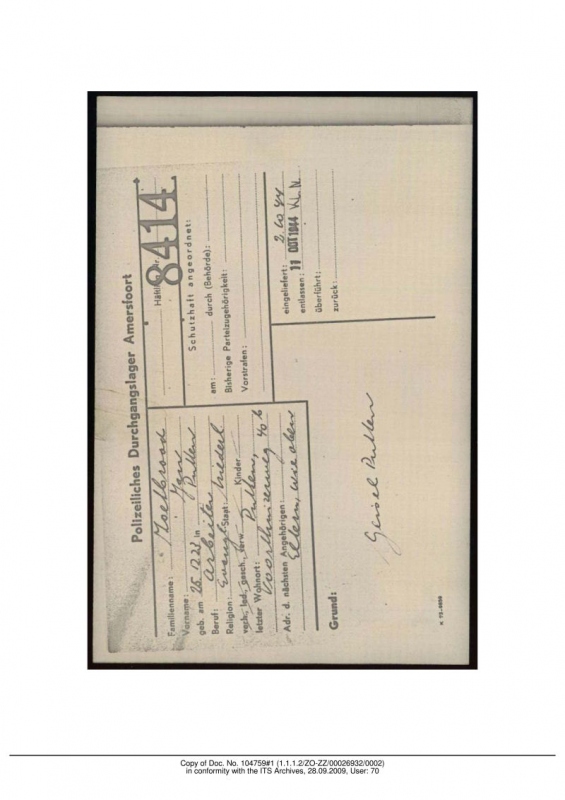 Polizeiliches Durchgangslager Amersfoort
Häftl. Nr. 8414
Familienname: Zoetbrood
Vorname: Jan
geb. am 26.12.23 in Putten
Beruf: Arbeiter
Religion: Evangl. Staat: Niederl.
verh., led., gesch., verw. Kinder
letzter Wohnort: Putten,
Voorthuizerweg 40 b
Adr. d. nächsten Angehörigen:
Eltern, wie oben
Schutzhaft angeordnet:
am: durch (Behörde):
Bisherige Parteizugehörigkeit:
Vorstrafen:
eingeliefert: 2.10.44
entlassen: 11 OCT 1944 K.L.N.
überführt:
zurück:
Grund:
Geisel Putten
Copy of Doc. No. 104759#1 (1.1.1.2/ZO-ZZ/00026932/0002)
in conformity with the ITS Archives, 28.09.2009, User: 70